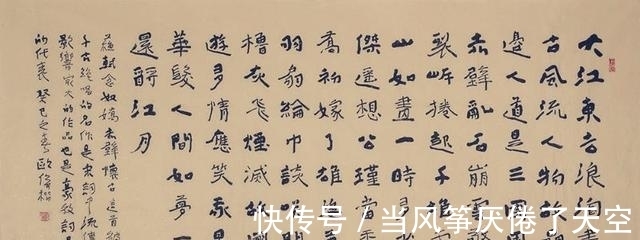 大江東去浪淘
古風流人物故
邊人道是三
赤壁亂石崩
裂岸捲起千
山如畫一時
傑遙想公瑾當
喬初嫁了雄
羽扇綸巾談
檣灰飛煙滅故
遊多情應笑我
華髮人間如夢一
還酹江月
蘇軾念奴嬌赤壁懷古這首被
千古絕唱的名作是宋詞中流傳
影響最大的作品也是豪放詞
的代表癸巳之春歐
快传号 / 当风筝厌倦了天空